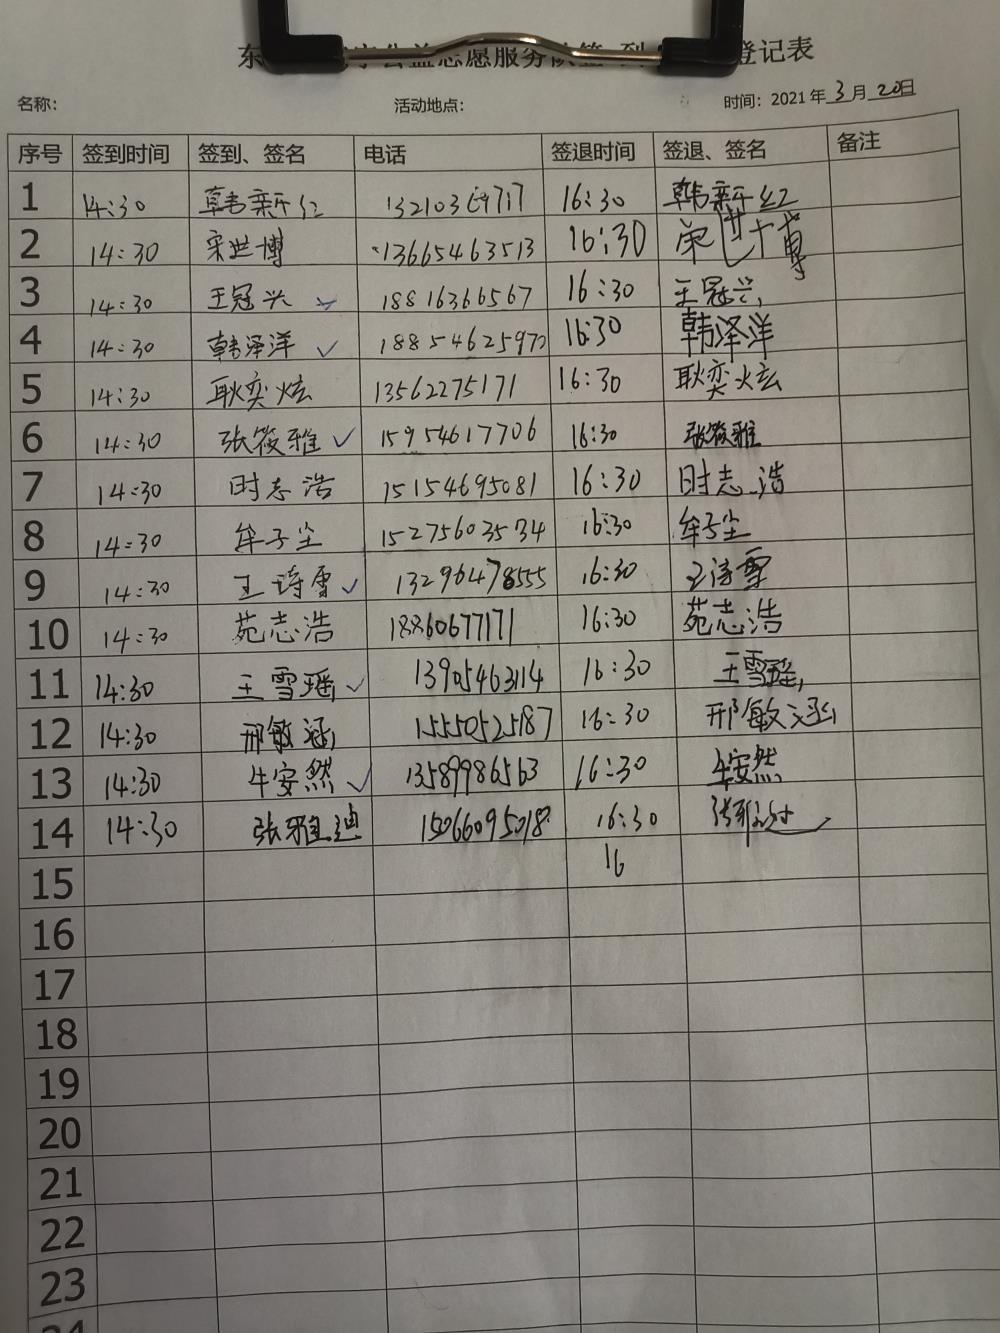 公益志愿服务队签 到 登记表
名称: 活动地点: 时间: 2021年3月20日
序号 签到时间 签到、签名 电话 签退时间 签退、签名 备注
1 14:30 韩新红 16:30 韩新红
2 14:30 宋世博 13665463513 16:30 宋世博
3 14:30 王冠兴 18816366567 16:30 王冠兴
4 14:30 韩泽洋 16:30 韩泽洋
5 14:30 耿奕炫 13562275171 16:30 耿奕炫
6 14:30 张筱雅 15954617706 16:30 张筱雅
7 14:30 时志浩 15154695081 16:30 时志浩
8 14:30 牟子尘 15275603534 16:30 牟子尘
9 14:30 王诗雪 13296478555 16:30 王诗雪
10 14:30 苑志浩 18860677171 16:30 苑志浩
11 14:30 王雪瑶 13905463114 16:30 王雪瑶
12 14:30 邢敏涵 15550525187 16:30 邢敏涵
13 14:30 牛安然 13589986563 16:30 牛安然
14 14:30 张雅迪 15066095018 16:30
15 16
16
17
18
19
20
21
22
23
24